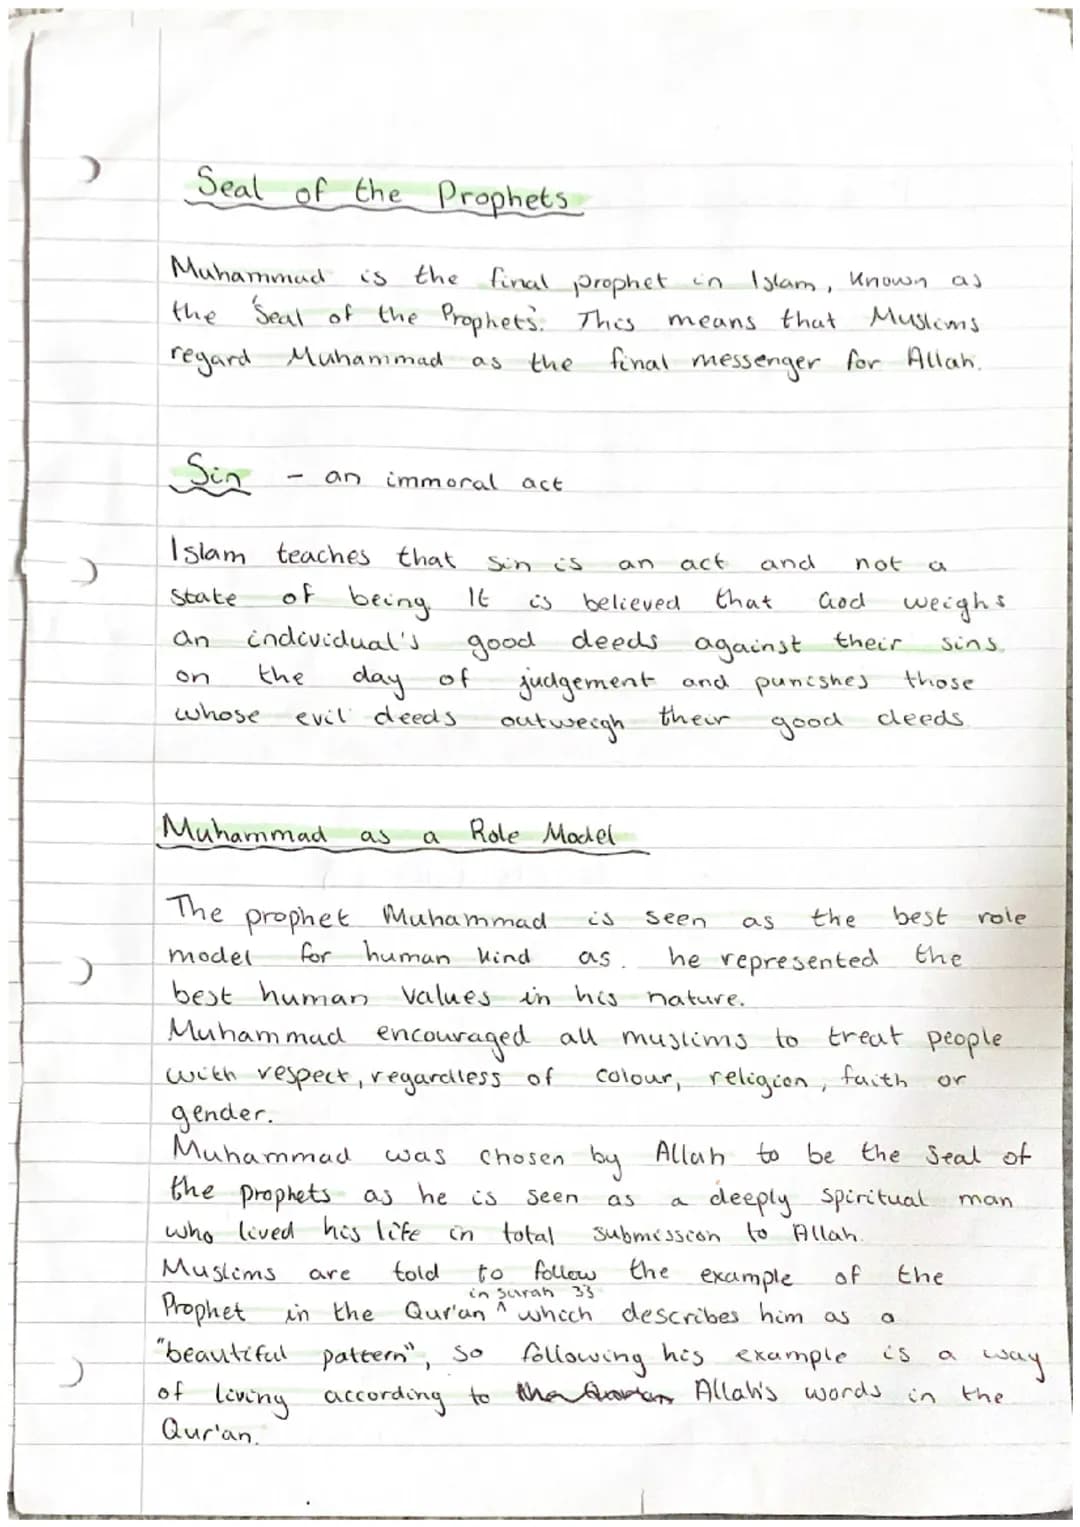 Seal of the Prophets
Muhammad is the final prophet in Islam, known as
the 'Seal of the Prophets'. This means that Muslims
regard Muhammad as the final messenger for Allah.
Sin - an immoral act
Islam teaches that sin is an act and not a
state of being. It is believed that God weighs
an individual's good deeds against their sins
on the day of judgement and punishes those
whose evil deeds outweigh their good deeds.
Muhammad as a Role Model
The prophet Muhammad is seen as the best role
model for human kind as. he represented the
best human values in his nature.
Muhammad encouraged all muslims to treat people
with respect, regardless of colour, religion, faith or
gender.
Muhammad was chosen by Allah to be the seal of
the prophets as he is seen as a deeply spiritual man
who lived his life in total submission to Allah.
Muslims are told to follow the example of the
in surah 33
Prophet in the Qur'an ^ which describes him as a
"beautiful pattern", so following his example is a way
of living according to Allah's words in the
Qur'an.